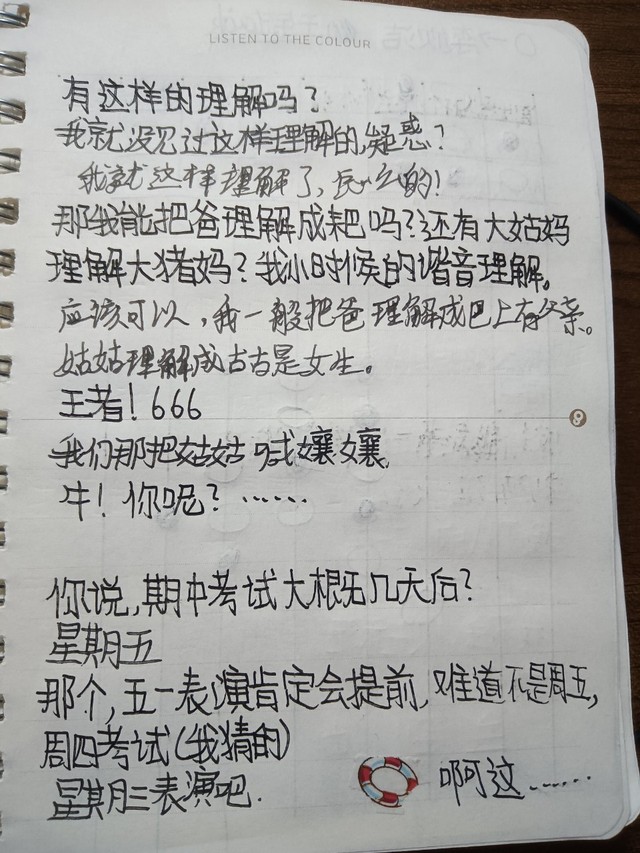 LISTEN TO THE COLOUR
有这样的理解吗？
我就没见过这样理解的,疑惑？
我就这样理解了,怎么的！
那我能把爸理解成耙吗？还有大姑妈
理解大猪妈？我小时候的谐音理解。
应该可以，我一般把爸理解成巴上有父亲。
姑姑理解成古古是女生。
王者！666
我们那把姑姑喊孃孃.
牛！你呢？……
你说,期中考试大概几天后？
星期五
那个,五一表演肯定会提前,难道不是周五,
周四考试(我猜的)
星期三表演吧.
啊这……